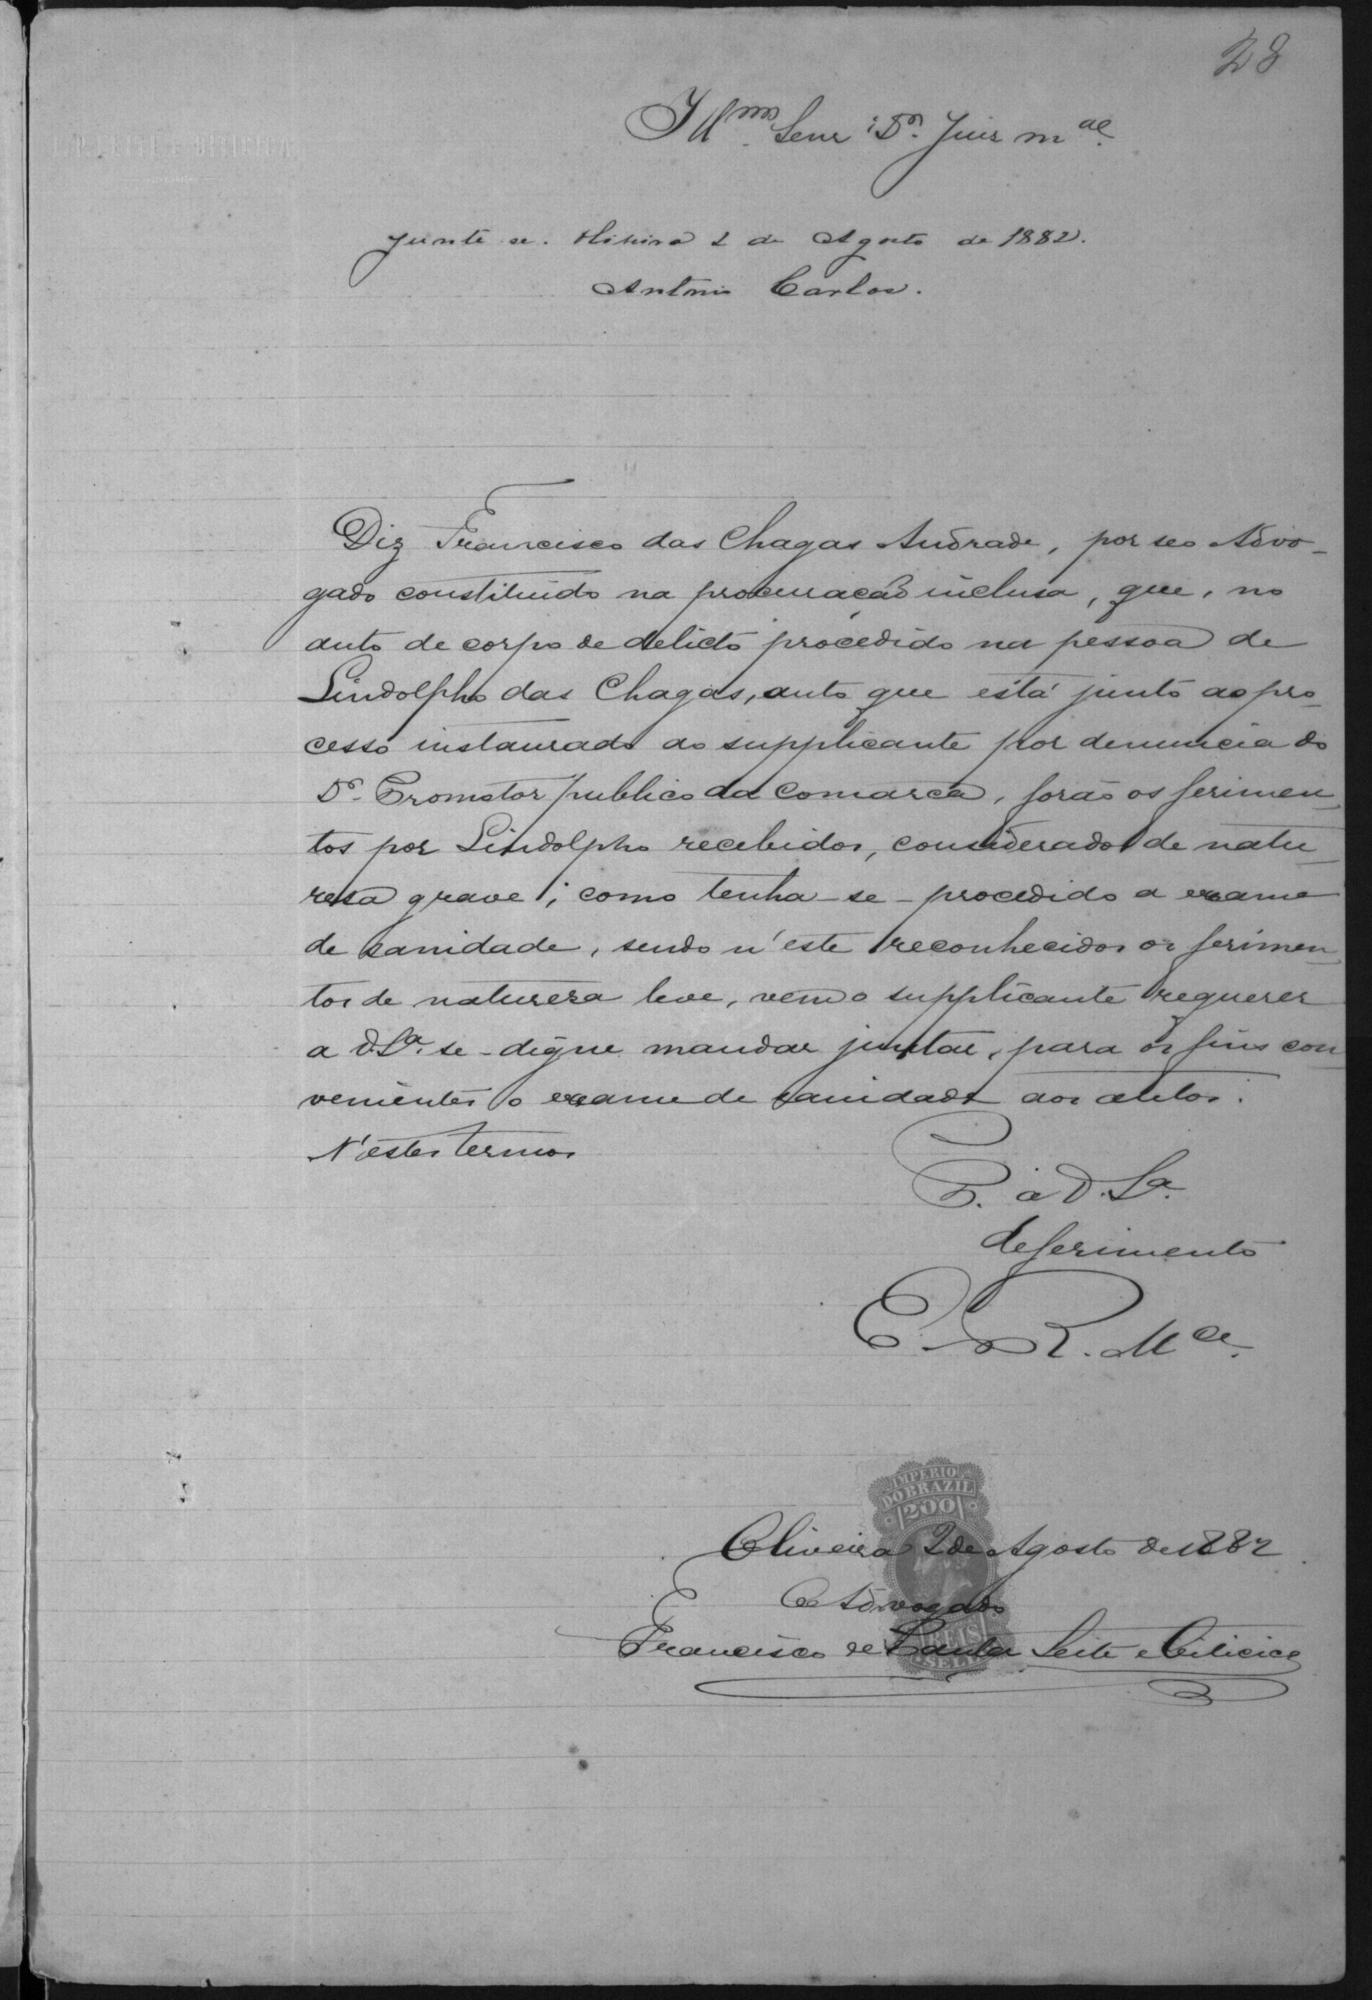 28
Illmo Senr Dr. Juis Mal.
Junte se. Oliveira 2 de Agosto de 1882.
Antonio Carlos.
Diz Francisco das Chagas Andrade, por seo Advo-
gado constituido na procuração inclusa, que, no
auto de corpo de delicto procedido na pessoa de
Lindolpho das Chagas, auto que está junto ao pro-
cesso instaurado ao supplicante por denuncia do
Dr. Promotor publico da Comarca, forão os ferimen-
tos por Lindolpho recebidos, considerados de natu-
resa grave; como tenha-se-procedido a exame
de sanidade, sendo n'este reconhecidos os ferimen-
tos de naturesa leve, vem o supplicante requerer
a V.Sa. se-digne mandar juntar, para os fins con-
venientes o exame de sanidade aos autos.
N'estes termos
P. a V. Sa.
deferimento
E. R. Mce.
IMPERIO
DO BRAZIL
200
Oliveira 2 de Agosto de 1882
O Advogado
REIS
Francisco de Paula Leite e